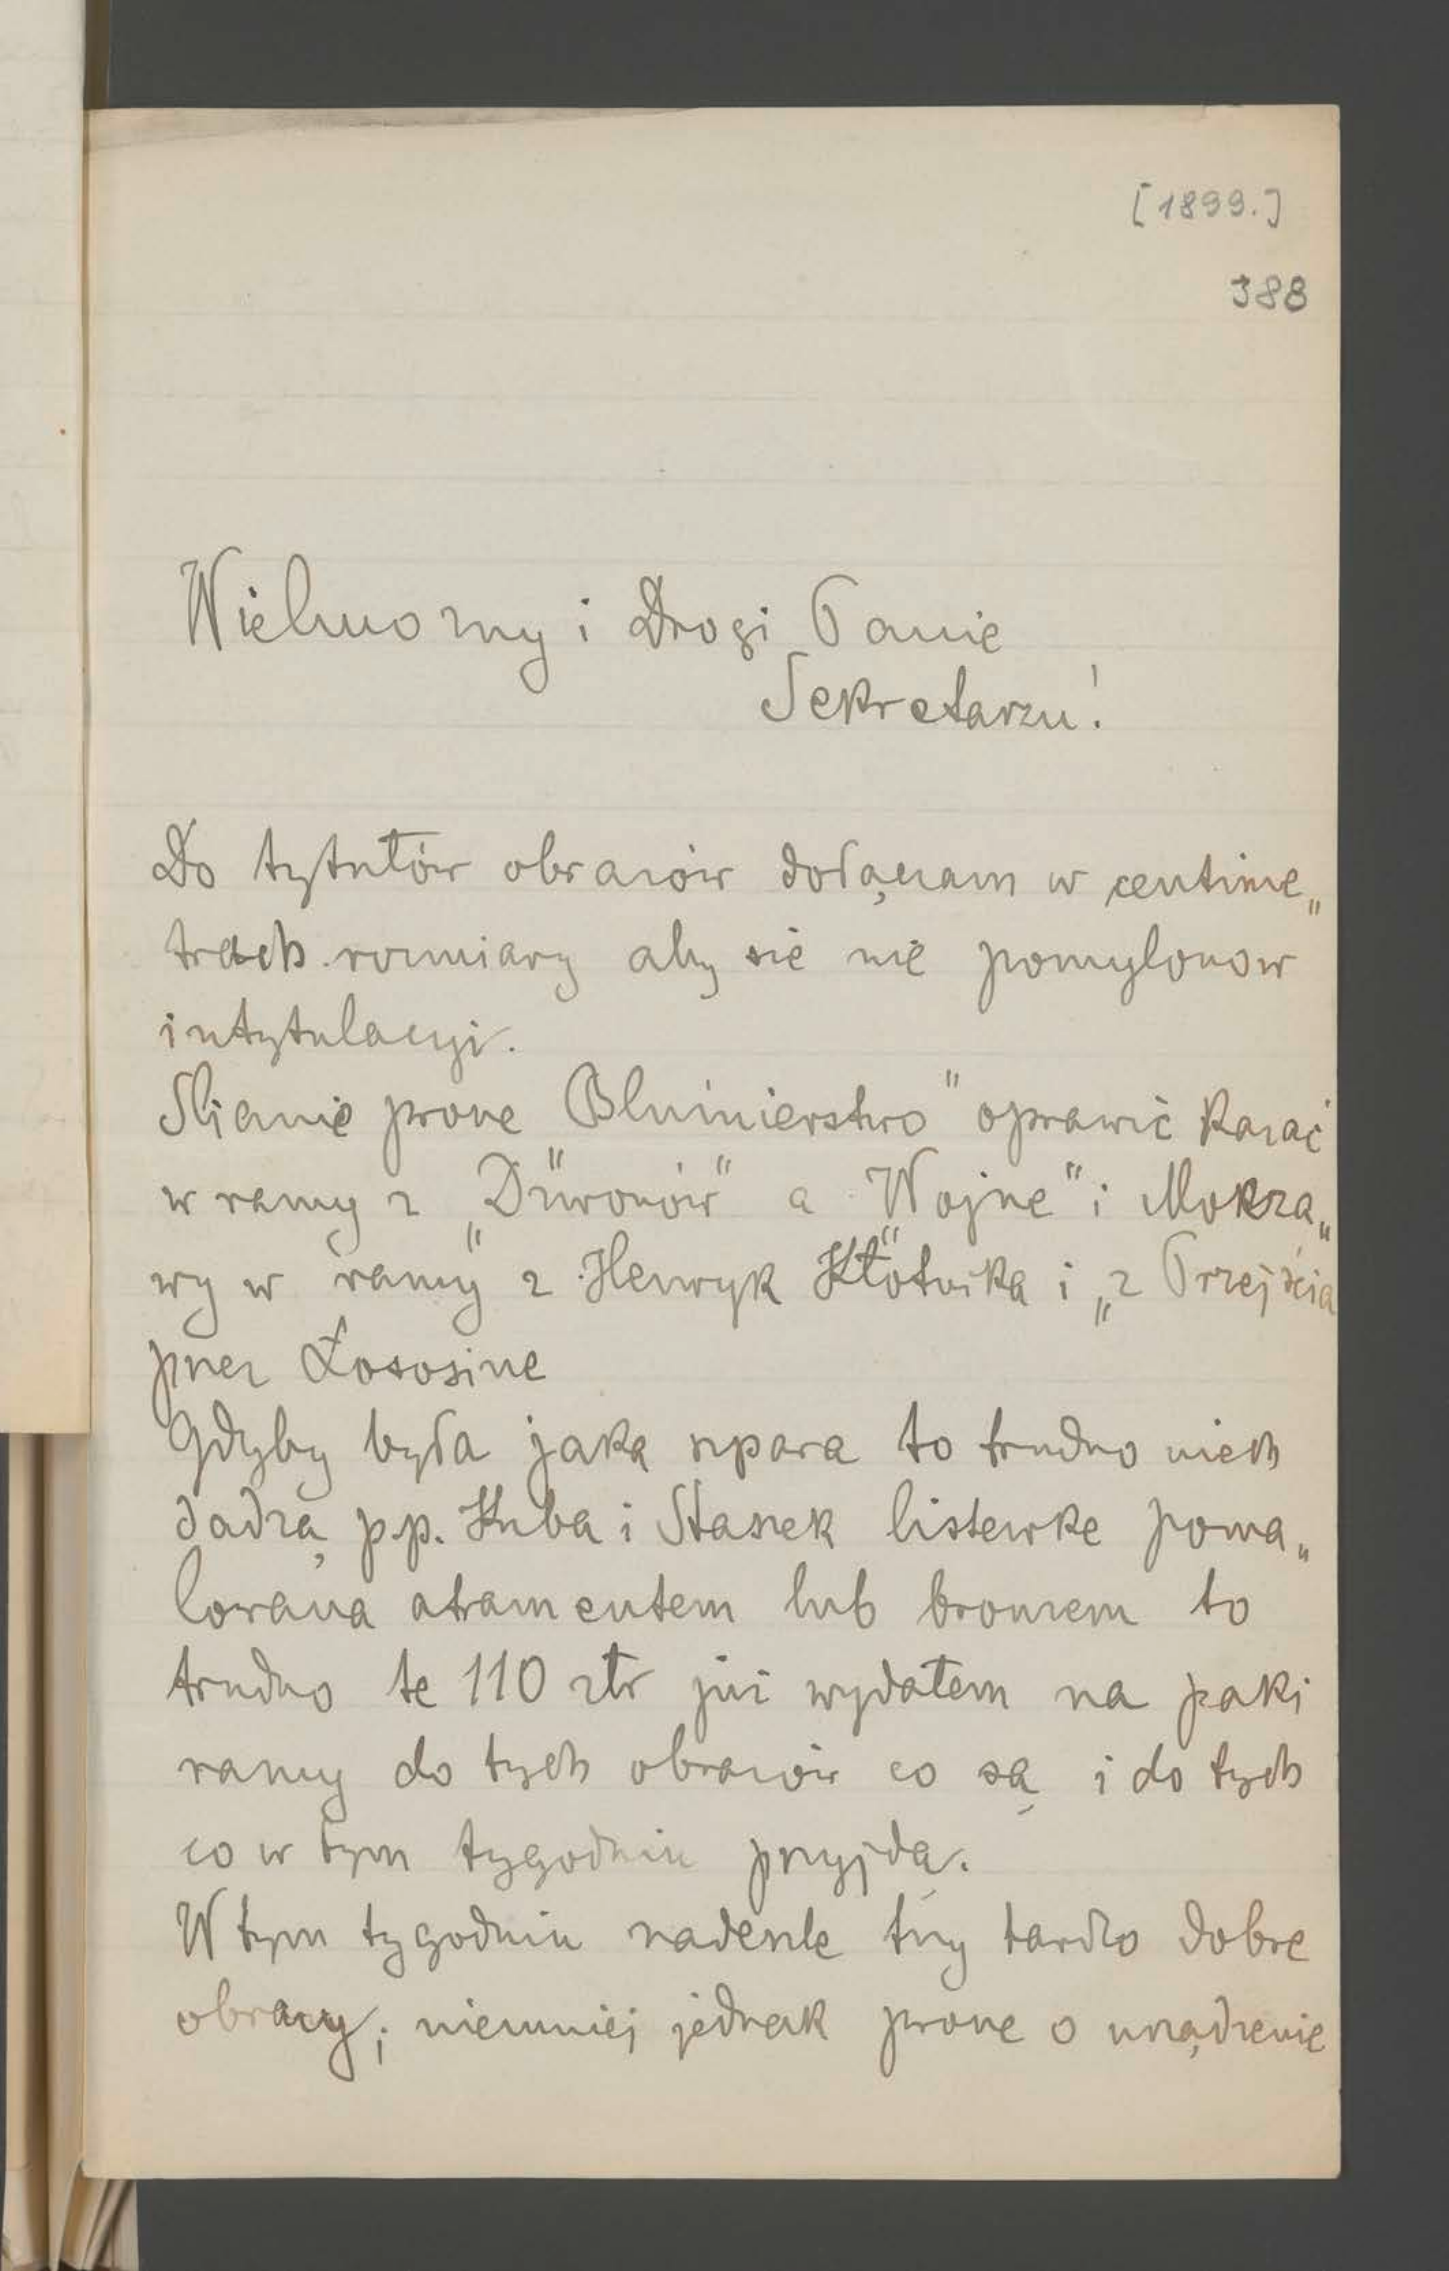 [1899.]
388
Wielmożny i Drogi Panie
Sekretarzu!
Do tytułów obrazów dołączam w centime„
trach rozmiary aby sie nie pomylono w
intytulacyi.
Ślicznie prosze Bluźnierstwo" oprawić kazać
w ramy z „Dzwonów" a Wojne" i Mokra„
wy w ramy z Henryk Kłótnika i „z Przejścia
przez Łososine
Gdyby była jaka szpara to trudno niech
dadzą p.p. Kuba i Staszek listewke poma„
lowana atramentem lub bronzem to
trudno te 110 złr już wydałem na paki
ramy do tych obrazów co są i do tych
co w tym tygodniu przyjdą.
W tym tygodniu nadeszle trzy bardzo dobre
obrazy; niemniej jednak prosze o urządzenie